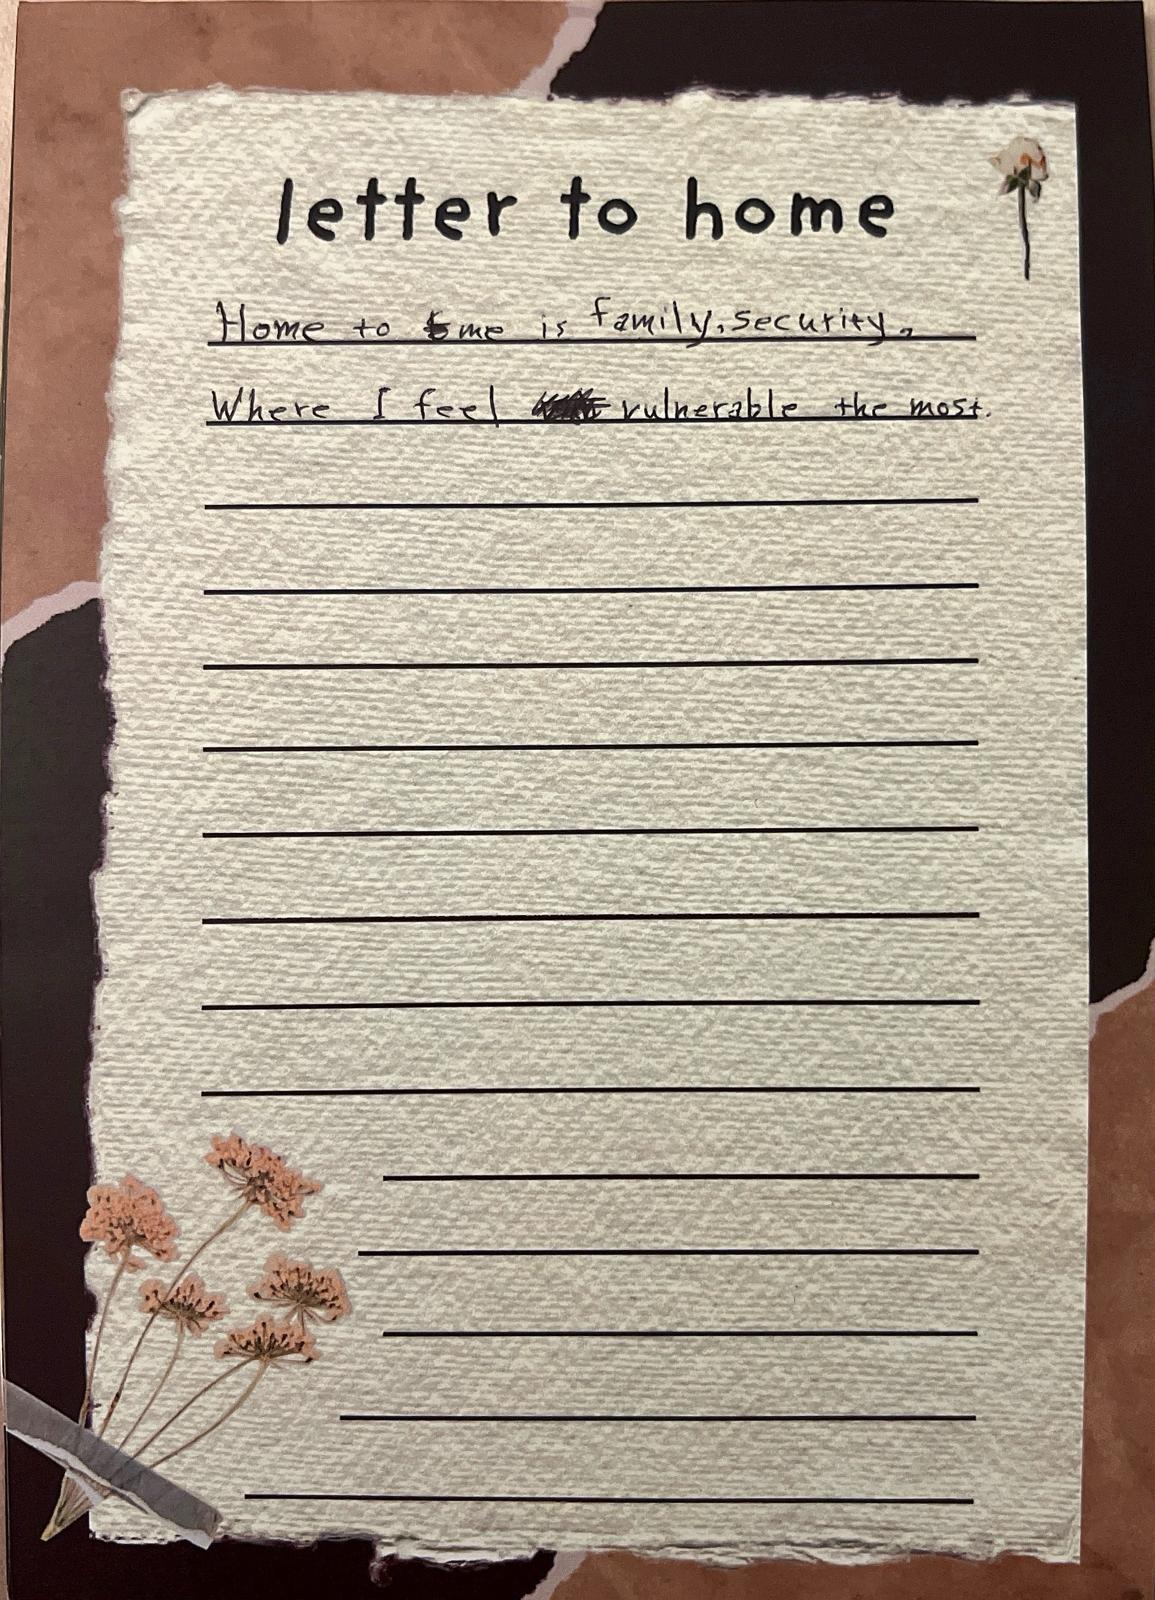 letter to home
Home to me is family, security,
Where I feel vulnerable the most.